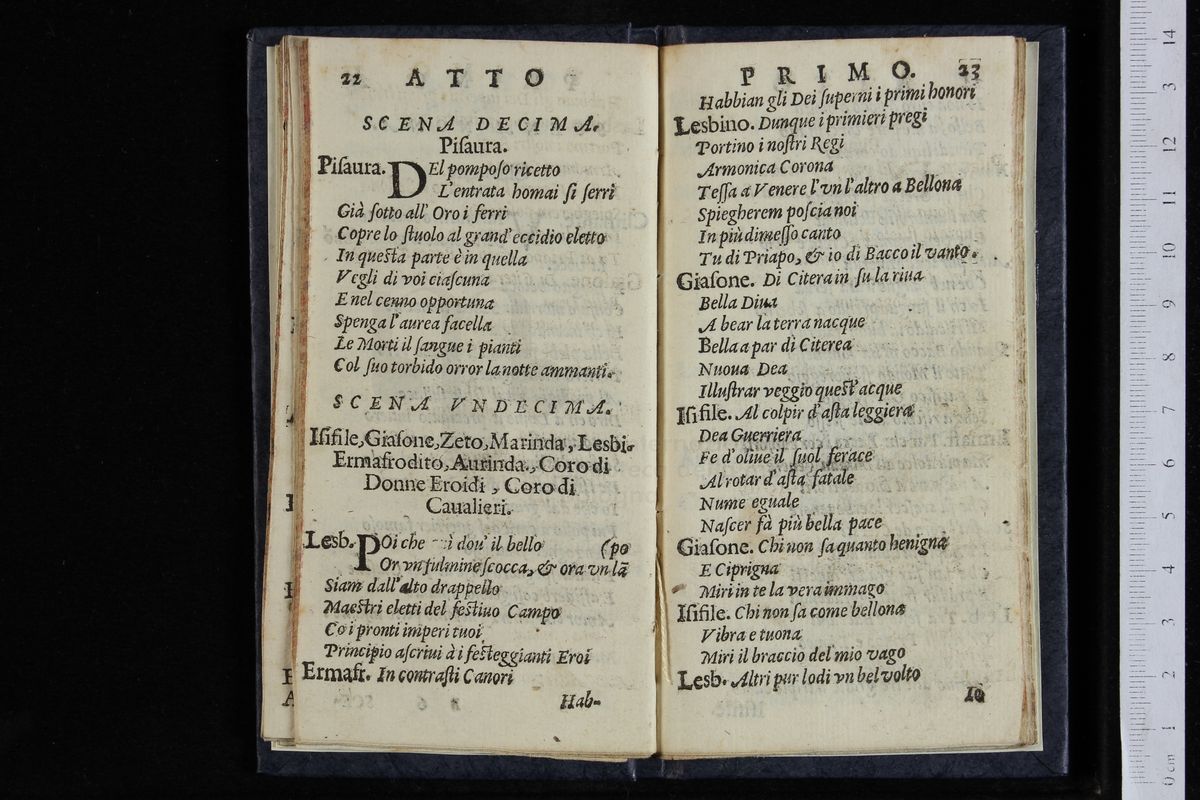 22 ATTO
SCENA DECIMA.
Piſaura.
Piſaura. DEl pompoſo ricetto
L'entrata homai ſi ſerri
Già ſotto all' Oro i ferri
Copre lo ſtuolo al grand' eccidio eletto
In queſta parte è in quella
Vegli di voi ciaſcuna
E nel cenno opportuna
Spenga l'aurea facella
Le Morti il ſangue i pianti
Col ſuo torbido orror la notte ammanti.
SCENA VNDECIMA.
Iſifile, Giaſone, Zeto, Marinda, Lesbi-
Ermafrodito, Aurinda., Coro di
Donne Eroidi, Coro di
Caualieri.
Lesb. POi che dou' il bello (po
Or vn fulmine ſcocca, & ora vn lã
Siam dall' alto drappello
Maeſtri eletti del feſtiuo Campo
Co i pronti imperi tuoi
Principio aſcriui à i feſteggianti Eroi
Ermafr. In contraſti Canori
Hab-
PRIMO. 23
Habbian gli Dei ſuperni i primi honori
Lesbino. Dunque i primieri pregi
Portino i noſtri Regi
Armonica Corona
Teſſa a Venere l'vn l'altro a Bellona
Spiegherem poſcia noi
In più dimeſſo canto
Tu di Priapo, & io di Bacco il vanto.
Giaſone. Di Citera in ſu la riua
Bella Diua
A bear la terra nacque
Bella a par di Citerea
Nuoua Dea
Illuſtrar veggio queſt' acque
Iſifile. Al colpir d'aſta leggiera
Dea Guerriera
Fe d'oliue il ſuol ferace
Al rotar d'aſta fatale
Nume eguale
Naſcer fà più bella pace
Giaſone. Chi non ſa quanto benigna
E Ciprigna
Miri in te la vera immago
Iſifile. Chi non ſa come bellona
Vibra e tuona
Miri il braccio del mio vago
Lesb. Altri pur lodi vn bel volto
Io